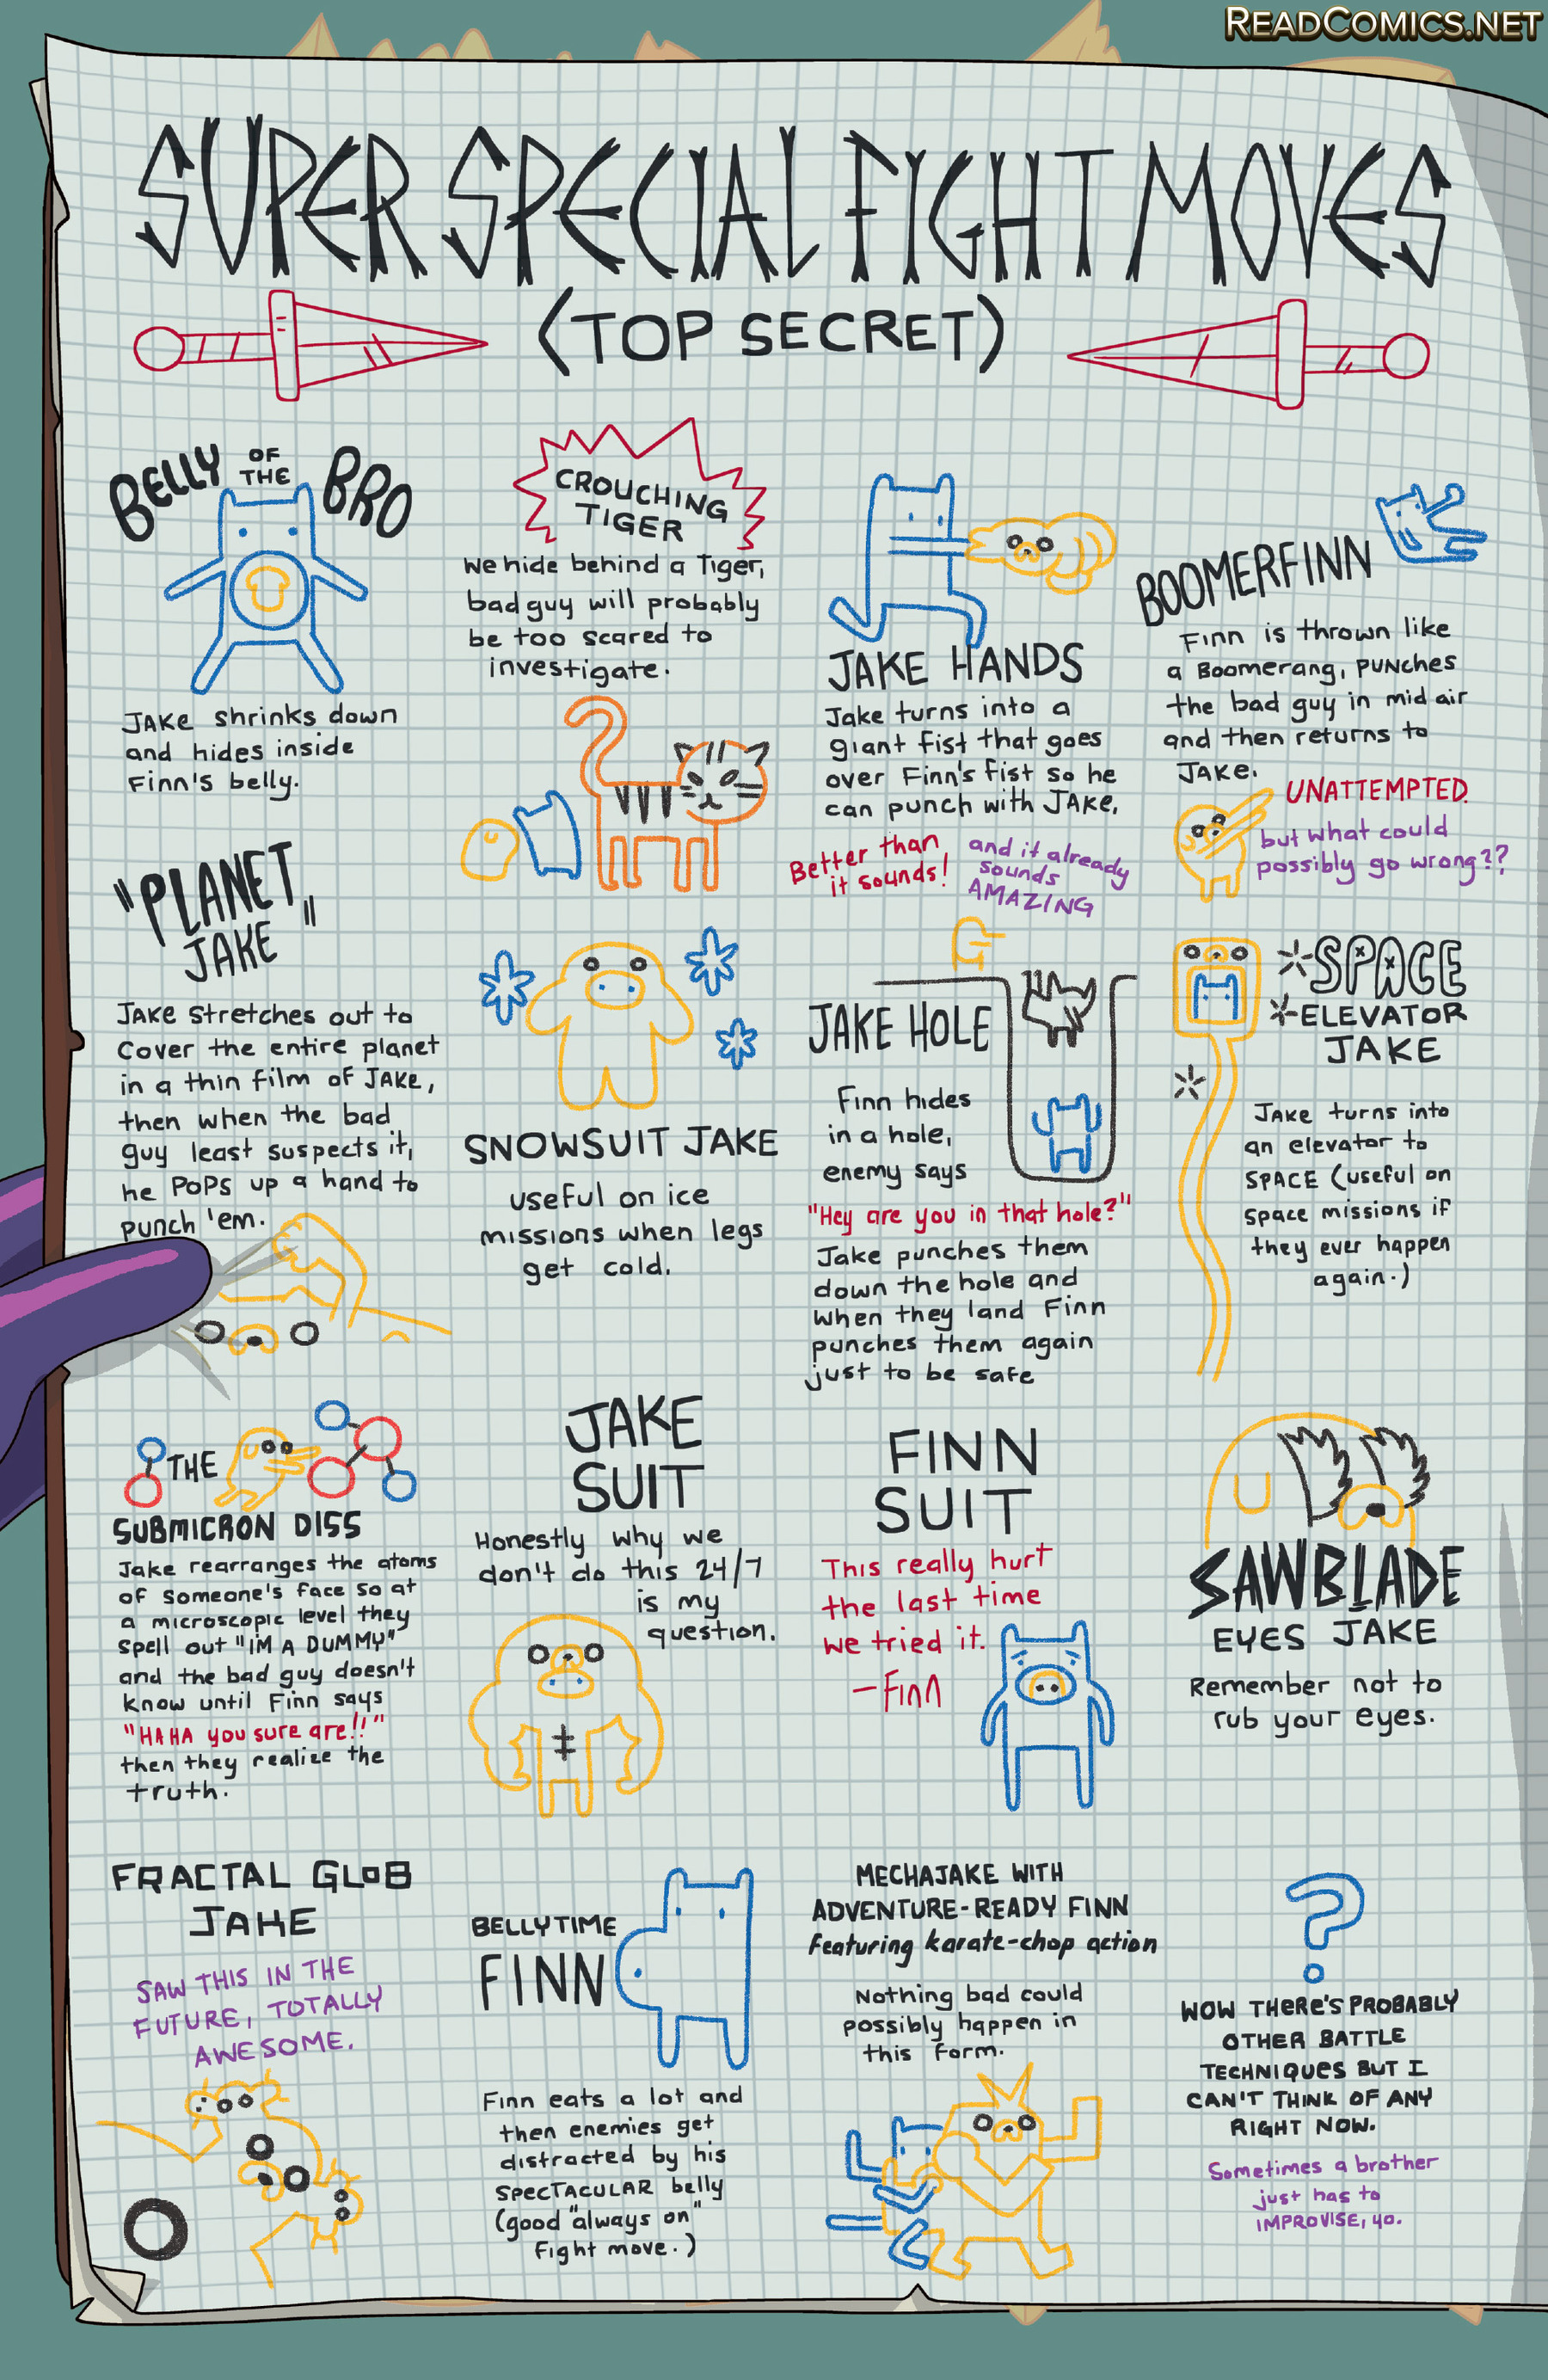 READCOMICS.NET
SUPER SPECIAL FIGHT MOVES
(TOP SECRET)
BELLY OF THE BRO
JAKE shrinks down
and hides inside
Finn's belly.
CROUCHING
TIGER
We hide behind a Tiger,
bad guy will probably
be too scared to
investigate.
JAKE HANDS
Jake turns into a
giant fist that goes
over Finn's fist so he
can punch with JAKE.
Better than
it sounds!
and it already
sounds
AMAZING
BOOMERFINN
Finn is thrown like
a Boomerang, PUNches
the bad guy in mid air
and then returns to
JAKe.
UNATTEMPTED.
but what could
possibly go wrong??
"PLANET
JAKE"
JAKe stretches out to
Cover the entire planet
in a thin film of JAKe,
then when the bad
guy least suspects it,
he POPS up a hand to
punch 'em.
SNOWSUIT JAKE
useful on ice
missions when legs
get cold.
JAKE HOLE
Finn hides
in a hole,
enemy says
"Hey are you in that hole?"
Jake punches them
down the hole and
when they land Finn
punches them again
just to be safe
SPACE
ELEVATOR
JAKE
JAKe turns into
an elevator to
SPACE (useful on
space missions if
they ever happen
again.)
THE
SUBMICRON DISS
Jake rearranges the atoms
of someone's face so at
a microscopic level they
spell out "I'M A DUMMY"
and the bad guy doesn't
know until Finn says
"HAHA you sure are!!"
then they realize the
truth.
JAKE
SUIT
Honestly why we
don't do this 24/7
is my
question.
FINN
SUIT
This really hurt
the last time
we tried it.
-Finn
SAWBLADE
EYES JAKE
Remember not to
rub your eyes.
FRACTAL GLOB
JAKE
SAW THIS IN THE
FUTURE, TOTALLY
AWESOME.
BELLYTIME
FINN
Finn eats a lot and
then enemies get
distracted by his
SPECTACULAR belly
(good "always on"
fight move.)
MECHAJAKE WITH
ADVENTURE-READY FINN
featuring karate-chop action
Nothing bad could
possibly happen in
this form.
?
WOW THeRe'S PROBABLY
OTHER BATTLE
TECHNIQUes BUT I
CAN'T THINK OF ANY
RIGHT NOW.
Sometimes a brother
just has to
IMPROVISE, yo.